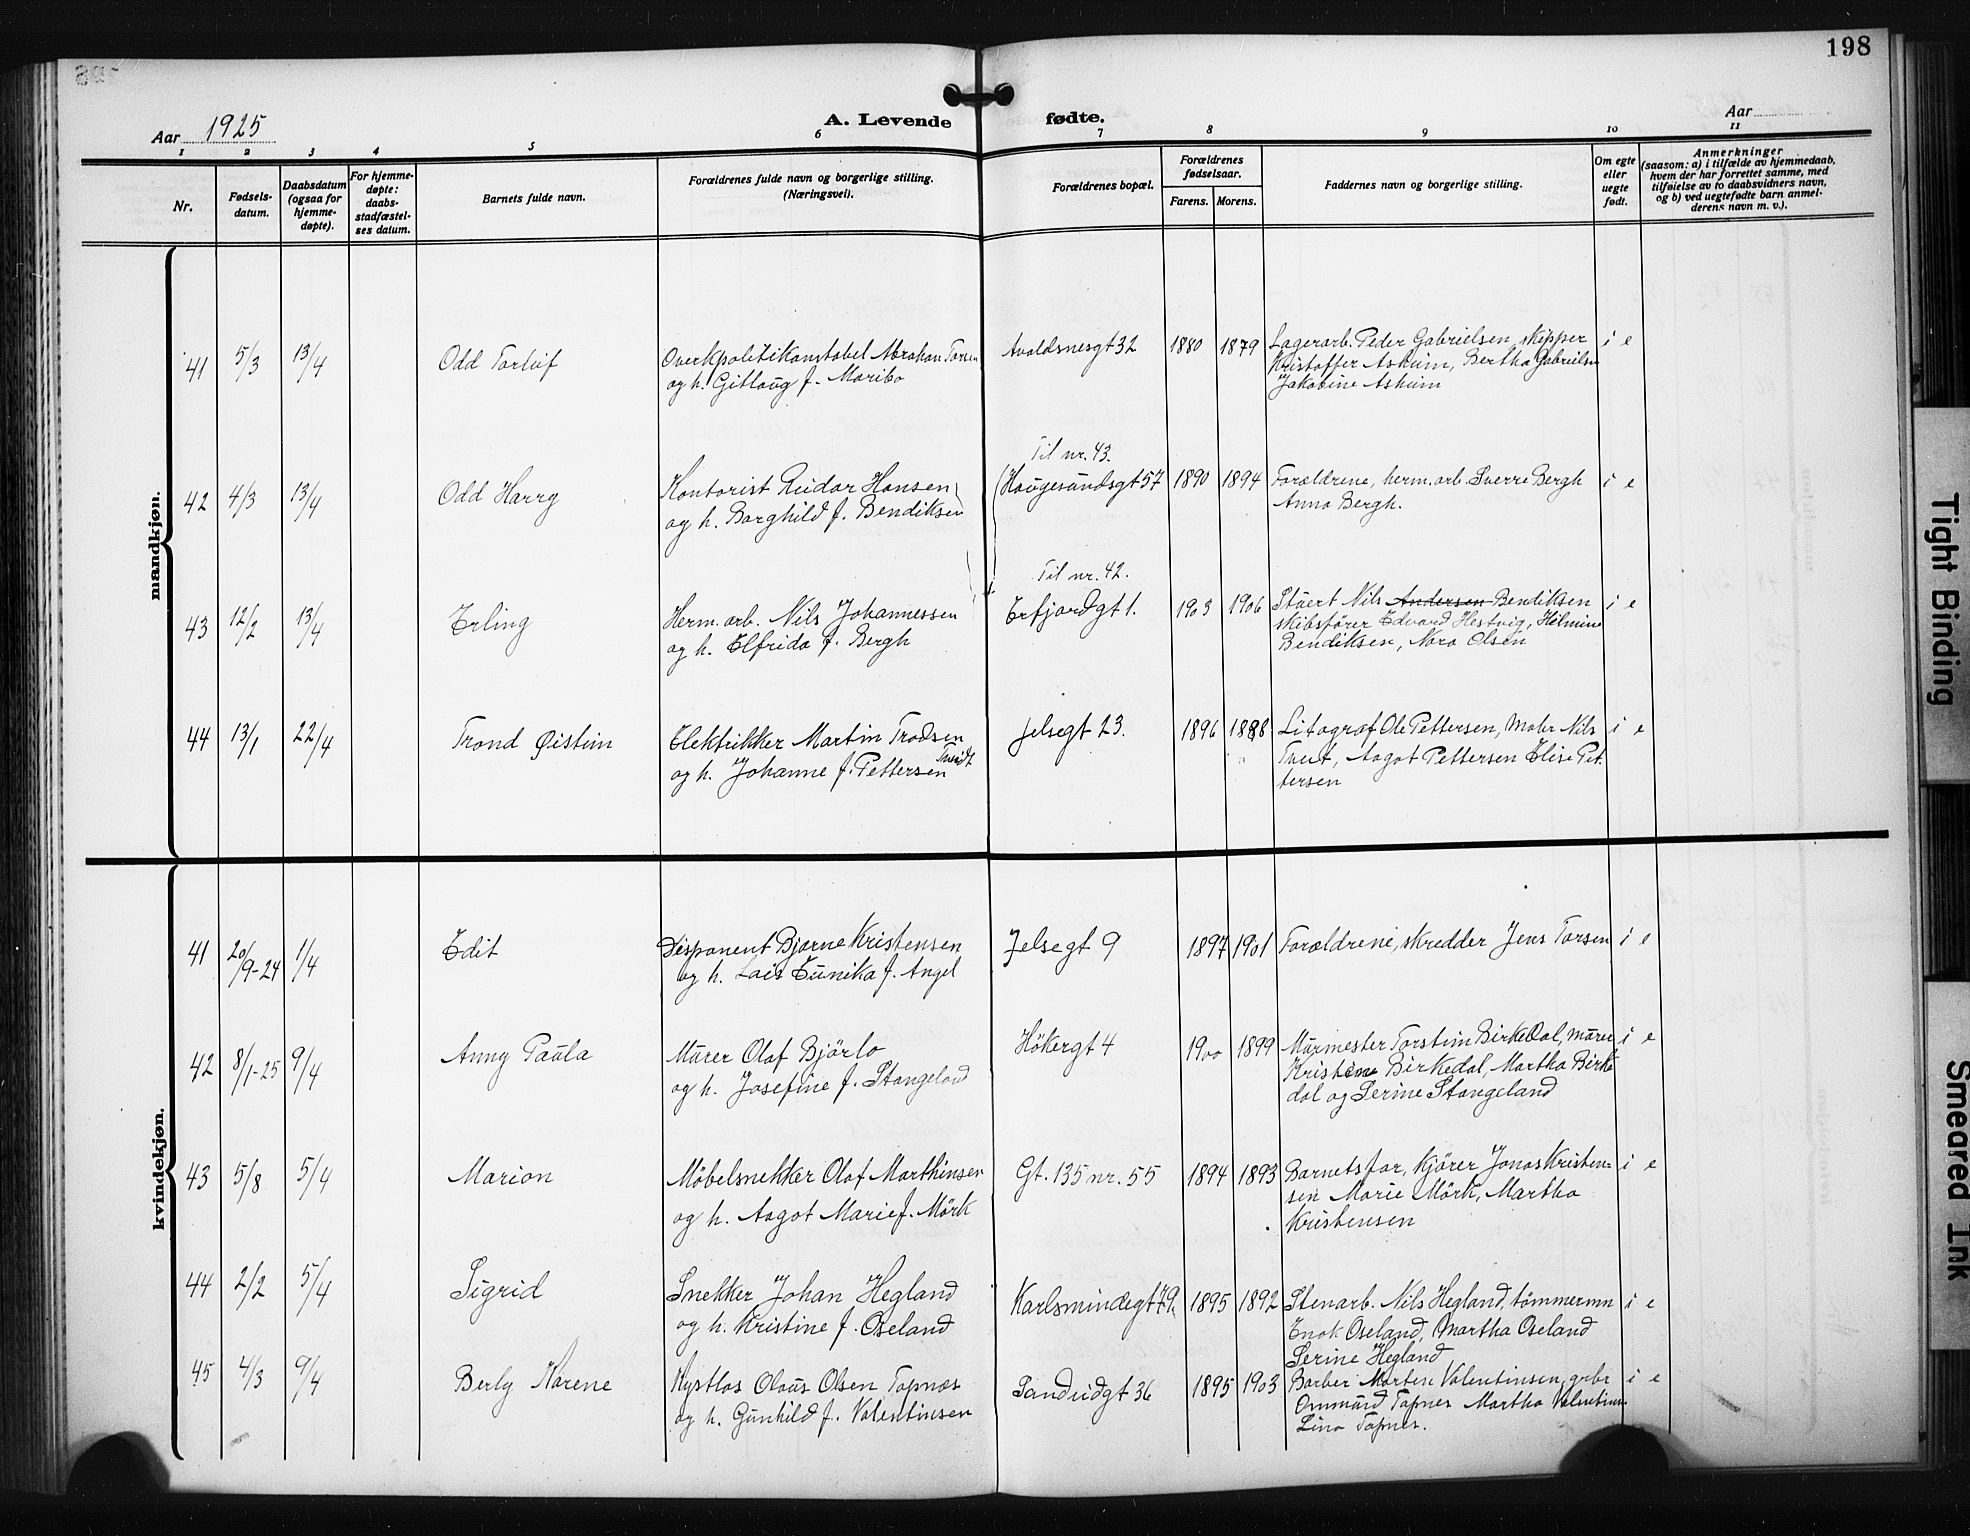 198
Aar 1925
A. Levende fødte.
Aar
1 2 3 4 5 6 7 8 9 10 11
Nr.
Fødsels-
datum.
Daabsdatum
(ogsaa for
hjemme-
døpte).
For hjemme-
døpte:
daabs-
stadfæstel-
ses datum.
Barnets fulde navn.
Forældrenes fulde navn og borgerlige stilling.
(Næringsvei).
Forældrenes bopæl.
Forældrenes
fødselsaar.
Farens. Morens.
Faddernes navn og borgerlige stilling.
Om egte
eller
uegte
født.
Anmerkninger
(saasom: a) i tilfælde av hjemmedaab,
hvem der har forrettet samme, med
tilføielse av to daabsvidners navn,
og b) ved uegtefødte barn anmel-
derens navn m. v.).
mandkjøn.
41 5/3 13/4 Odd Torluf Overkpolitikonstabel Abraham Torsen Avaldsnesgt 32 1880 1879 Lagerarb. Peder Gabrielsen, skipper i e
og h. Gitlaug f. Maribo Kristoffer Askum, Bertha Gabrielsen
Jakobine Askum
Til nr. 43.
42 4/3 13/4 Odd Harry Kontorist Reidar Hansen Haugesundsgt 57 1890 1894 Forældrene, herm.arb. Sverre Bergh i e
og h. Borghild f. Bendiksen Anna Bergh.
Til nr. 42.
43 12/2 13/4 Erling Herm. arb. Nils Johannessen Erfjordgt 1. 1903 1906 Stuert Nils Andersen Bendiksen i e
og h. Elfrida f. Bergh skibsfører Edvard Hestvig, Hilmine
Bendiksen, Nora Olsen
44 13/1 22/4 Trond Øistein Elektrikker Martin Trodsen Jelsegt 23. 1896 1888 Litograf Ole Pettersen, Maler Nils i e
Tveidt
og h. Johanne f. Pettersen Tveit, Aagot Pettersen Elise Pet
tersen
kvindekjøn.
41 20/9-24 1/4 Edit Disponent Bjarne Kristensen Jelsegt 9 1897 1901 Forældrene, skredder Jens Torsen i e
og h. Lois Eunika f. Angel
42 8/1-25 9/4 Anny Paula Murer Olaf Bjørlo Hökergt 4 1900 1899 Murmester Torstein Birkedal, murer i e
og h. Josefine f. Stangeland Kristine Birkedal, Martha Birke
dal og Serine Stangeland
43 5/8 5/4 Marion Möbelsnekker Olaf Marthinsen Gt. 135 nr. 55 1894 1893 Barnets far, kjörer Jonas Kristen- i e
og h. Aagot Marie f. Mörk sen Marie Mörk, Martha
Kristensen
44 2/2 5/4 Sigrid Snekker Johan Hegland Karlsmindegt 79. 1895 1892 Stenarb. Nils Hegland, tömmermn i e
og h. Kristine f. Oseland Enok Oseland, Martha Oseland
Serine Hegland
45 4/3 9/4 Berly Karene Kystlos Olaus Olsen Topnes Sandeidgt 36 1895 1903 Barber Morten Valentinsen, grbr i e
og h. Gunhild f. Valentinsen Ommund Topnes Martha Valentinsen
Lina Topnes.
Tight Binding
Smeared Ink